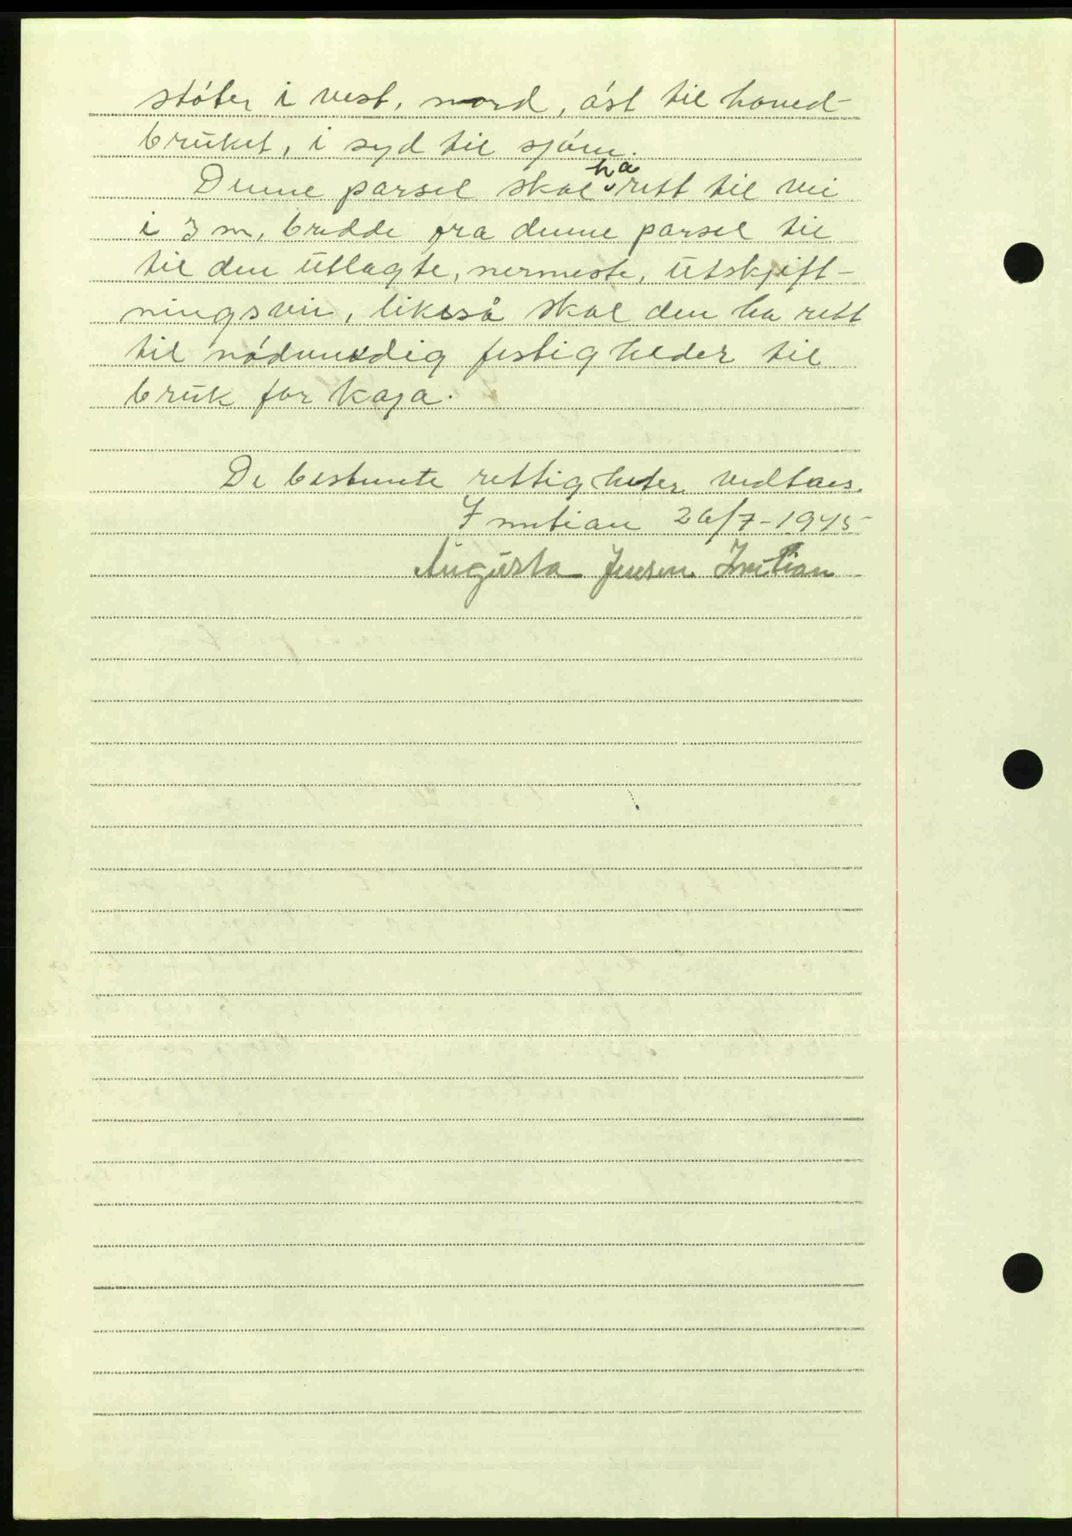 støter i vest, nord, øst til hoved-
bruket, i syd til sjøen.
Denne parsel skal ha rett til vei
i 3 m. bredde fra denne parsel til
til den utlagte, nermeste, utskjift-
ningsvei, liksså skal den ha rett
til nødvendig festigheder til
bruk for kaja.
De bestemte rettigheter vedtaes.
Imtian 26/7-1945
Augusta Jensen Imtian